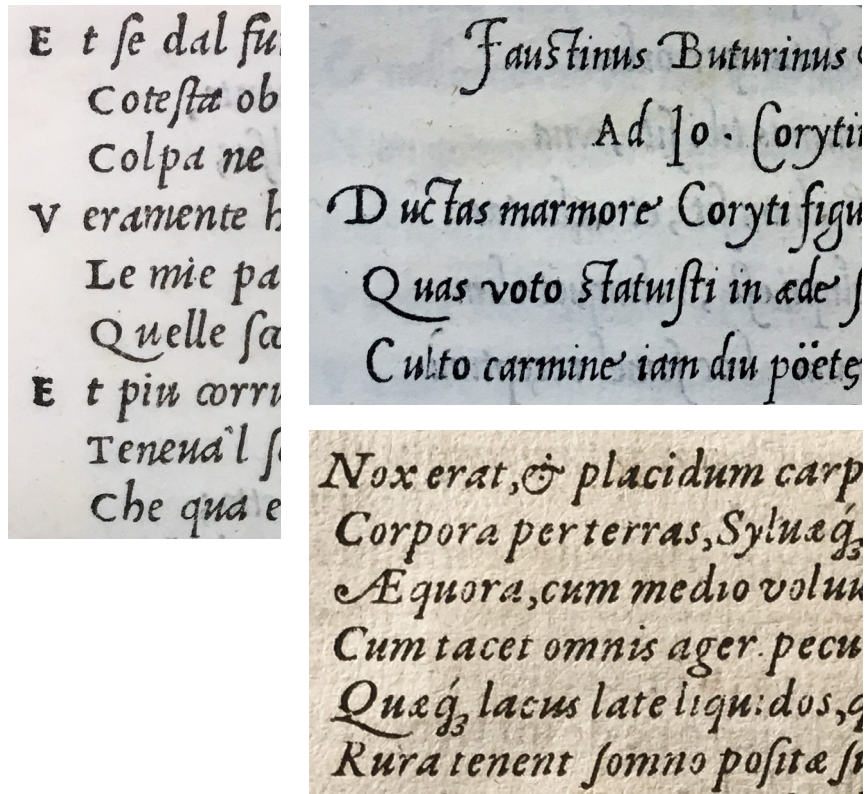 E t ſe dal fu
Coteſta ob
Colpa ne
V eramente h
Le mie pa
Quelle ſa
E t piu corru
Teneua'l ſ
Che qua e
Fauſtinus Buturinus
Ad Io. Coryti
D uctas marmore Coryti figu
Q uas voto ſtatuiſti in æde ſ
C ulto carmine iam diu pöetę
Nox erat,& placidum carp
Corpora per terras,Syluæq́;
Æquora,cum medio voluu
Cum tacet omnis ager. pecu
Quæq́; lacus late liquidos,q
Rura tenent ſomno poſitæ ſu